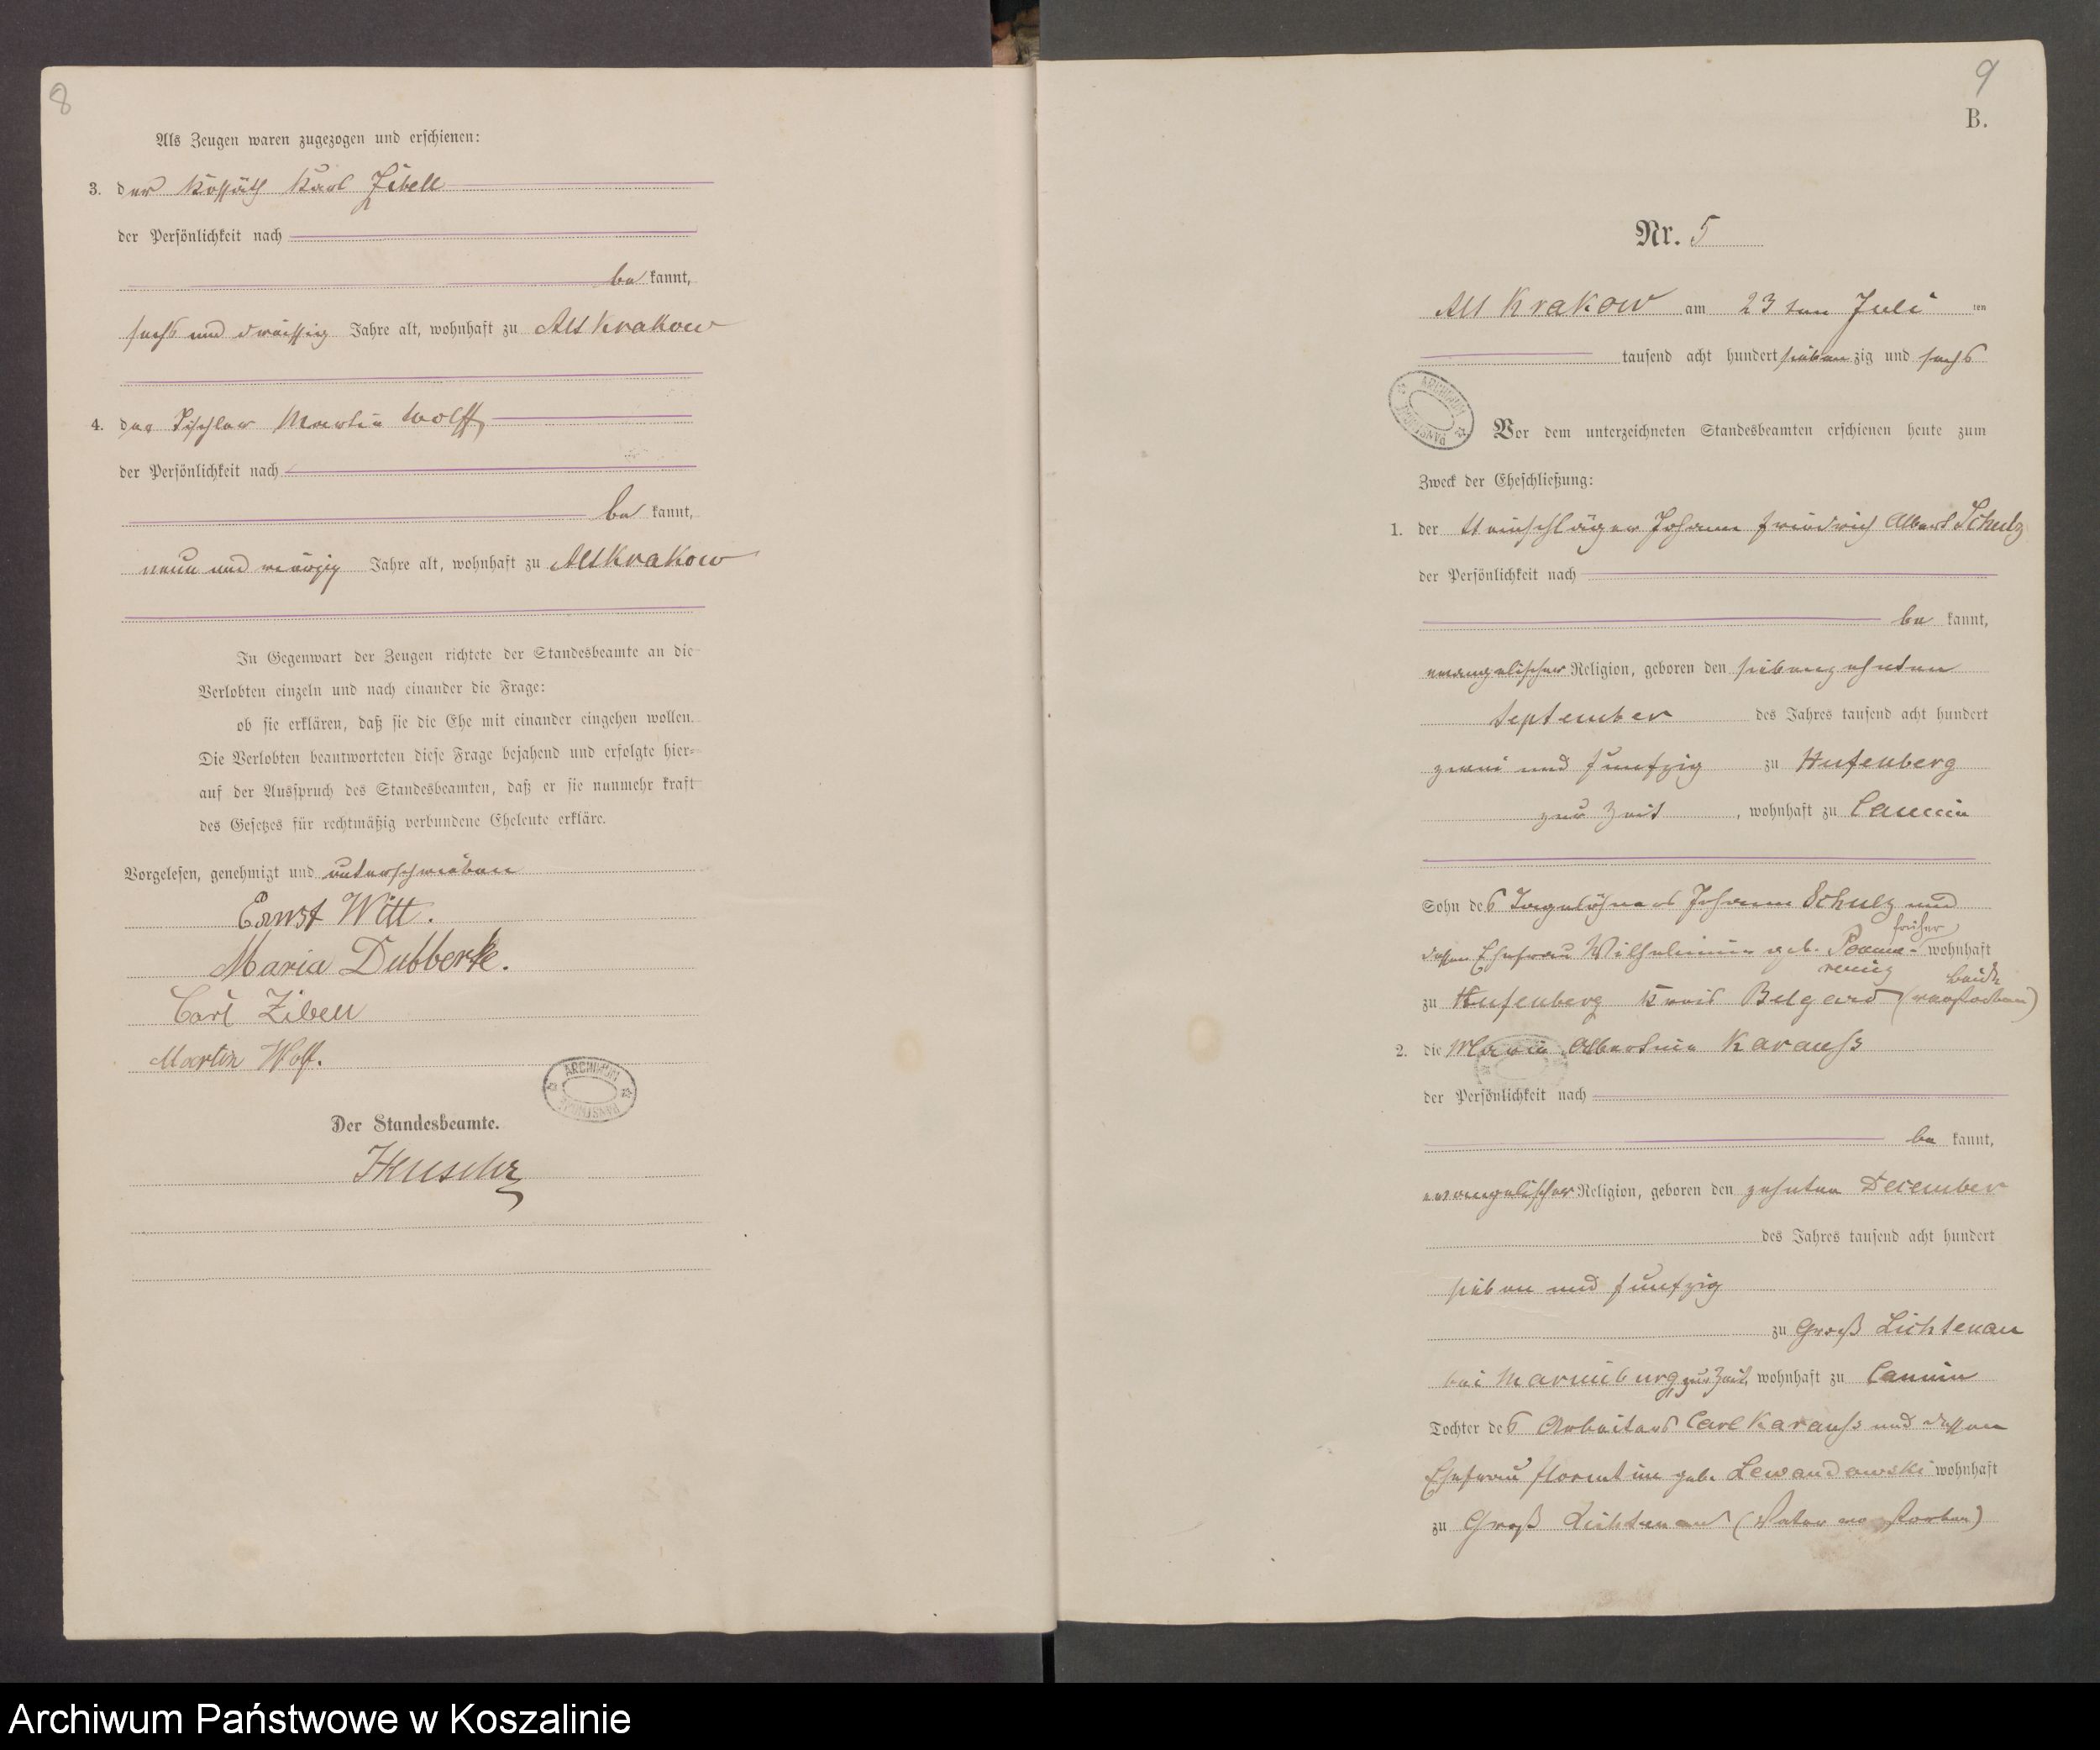 8
Als Zeugen waren zugezogen und erschienen:
3. der Kossäth Karl Zibell
der Persönlichkeit nach
be kannt,
sechs und dreissig Jahre alt, wohnhaft zu Alt Krakow
4. der Tischler Martin Wolff
der Persönlichkeit nach
be kannt,
neun und vierzig Jahre alt, wohnhaft zu Alt Krakow
In Gegenwart der Zeugen richtete der Standesbeamte an die
Verlobten einzeln und nach einander die Frage:
ob sie erklären, daß sie die Ehe mit einander eingehen wollen.
Die Verlobten beantworteten diese Frage bejahend und erfolgte hier-
auf der Ausspruch des Standesbeamten, daß er sie nunmehr kraft
des Gesetzes für rechtmäßig verbundene Eheleute erkläre.
Vorgelesen, genehmigt und unterschrieben
Ernst Witt.
Maria Dubberke.
Carl Zibell
Martin Wolf.
ARCHIWUM PAŃSTWOWE
Der Standesbeamte.
9
B.
Nr. 5
Alt Krakow am 23 ten Juli ten
tausend acht hundert sieben zig und sechs
ARCHIWUM PAŃSTWOWE
Vor dem unterzeichneten Standesbeamten erschienen heute zum
Zweck der Eheschließung:
1. der Steinschläger Johann Friedrich Albert Schulz
der Persönlichkeit nach
be kannt,
evangelischer Religion, geboren den siebenzehnten
September des Jahres tausend acht hundert
zwei und funfzig zu Hufenberg
zur Zeit, wohnhaft zu Cannin
Sohn des Tagelöhners Johann Schulz und
früher
dessen Ehefrau Wilhelmine geb. Pomme- wohnhaft
rening beide
zu Hufenberg Kreis Belgard (verstorben)
2. die Maria Albertine Karauss
der Persönlichkeit nach
be kannt,
evangelischer Religion, geboren den zehnten December
des Jahres tausend acht hundert
sieben und funfzig
zu Groß Lichtenau
bei Marienburg zur Zeit, wohnhaft zu Cannin
Tochter des Arbeiters Carl Karauss und dessen
Ehefrau Florentine geb. Lewandowski wohnhaft
zu Groß Lichtenau (Vater verstorben)
Archiwum Państwowe w Koszalinie